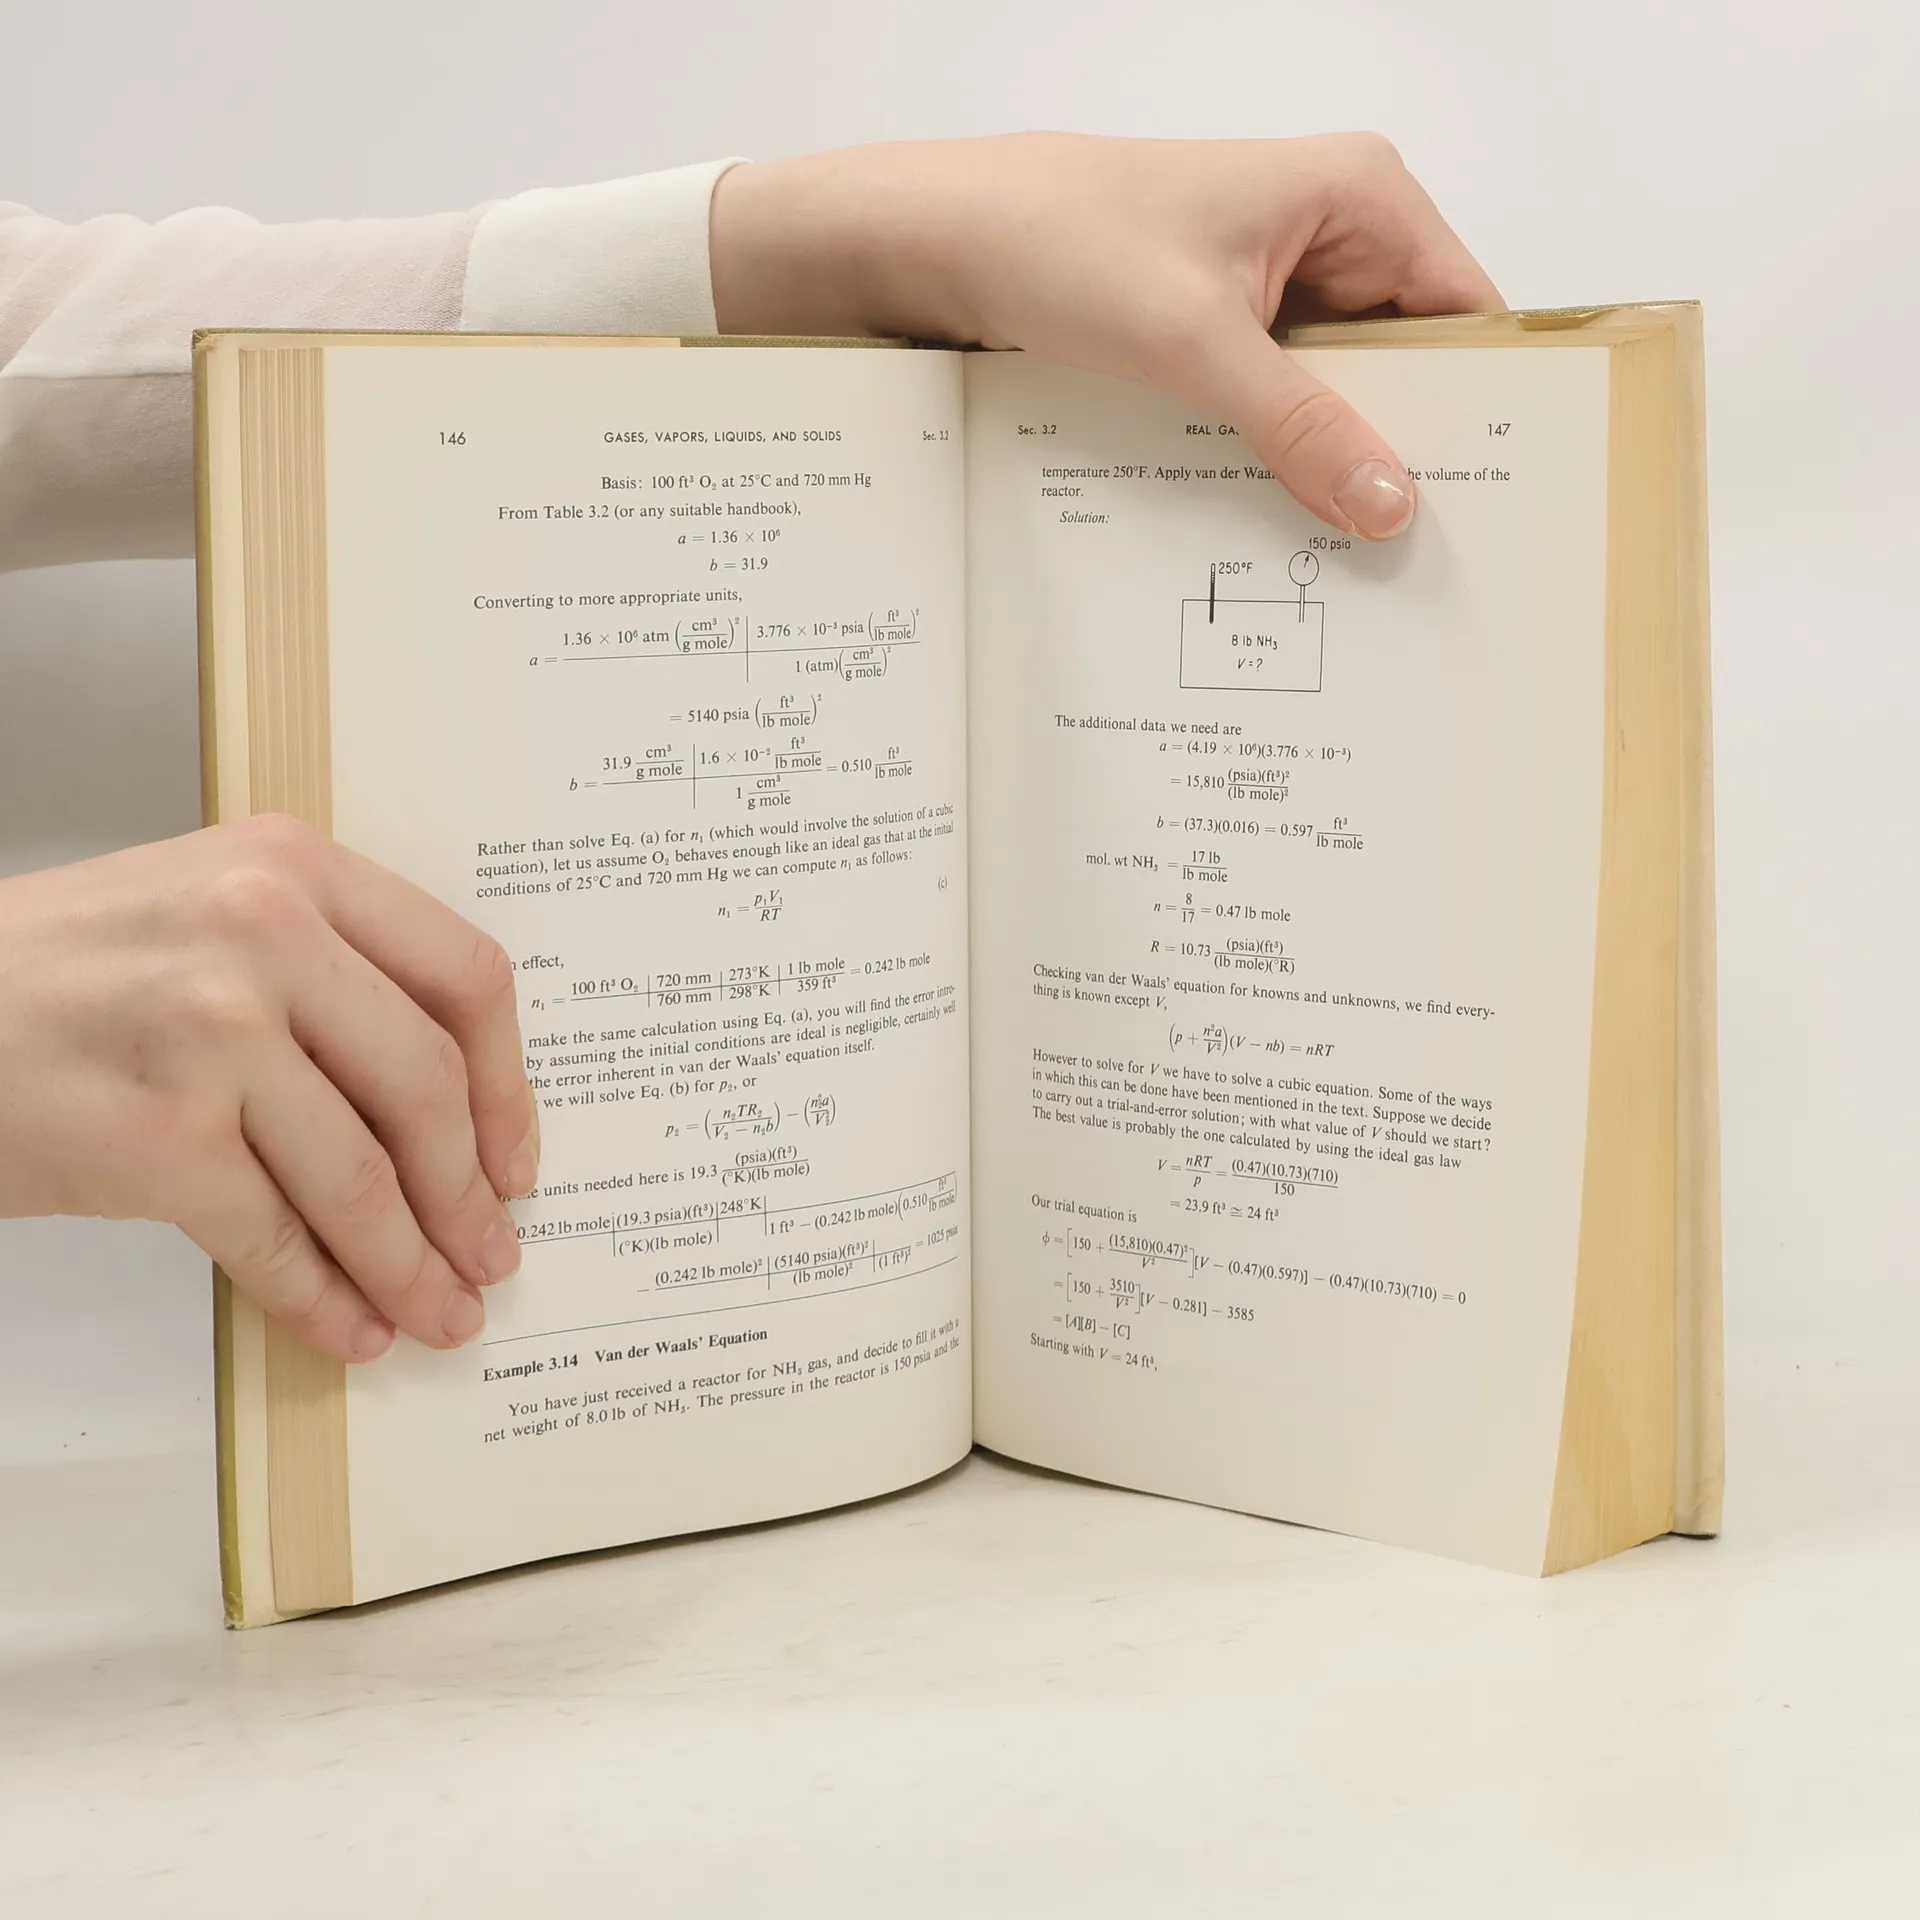 146 GASES, VAPORS, LIQUIDS, AND SOLIDS Sec. 3.2
Basis: 100 ft³ O₂ at 25°C and 720 mm Hg
From Table 3.2 (or any suitable handbook),
a = 1.36 × 10⁶
b = 31.9
Converting to more appropriate units,
a = 1.36 × 10⁶ atm (cm³/g mole)² | 3.776 × 10⁻³ psia (ft³/lb mole)² / 1 (atm)(cm³/g mole)²
= 5140 psia (ft³/lb mole)²
b = 31.9 cm³/g mole | 1.6 × 10⁻² ft³/lb mole / 1 cm³/g mole = 0.510 ft³/lb mole
Rather than solve Eq. (a) for n₁ (which would involve the solution of a cubic
equation), let us assume O₂ behaves enough like an ideal gas that at the initial
conditions of 25°C and 720 mm Hg we can compute n₁ as follows:
n₁ = p₁V₁/RT (c)
effect,
n₁ = 100 ft³ O₂ | 720 mm | 273°K | 1 lb mole / 760 mm | 298°K | 359 ft³ = 0.242 lb mole
make the same calculation using Eq. (a), you will find the error intro-
by assuming the initial conditions are ideal is negligible, certainly well
the error inherent in van der Waals' equation itself.
we will solve Eq. (b) for p₂, or
p₂ = (n₂TR₂/V₂ − n₂b) − (n₂²a/V₂²)
units needed here is 19.3 (psia)(ft³)/(°K)(lb mole)
0.242 lb mole | (19.3 psia)(ft³) | 248°K | / | (°K)(lb mole) | | 1 ft³ − (0.242 lb mole)(0.510 ft³/lb mole)
− (0.242 lb mole)² | (5140 psia)(ft³)² | / | (lb mole)² | (1 ft³)² = 1025 psia
Example 3.14 Van der Waals' Equation
You have just received a reactor for NH₃ gas, and decide to fill it with a
net weight of 8.0 lb of NH₃. The pressure in the reactor is 150 psia and the
Sec. 3.2 REAL 147
temperature 250°F. Apply van der volume of the
reactor.
Solution:
150 psia
250°F
8 lb NH₃
V = ?
The additional data we need are
a = (4.19 × 10⁶)(3.776 × 10⁻³)
= 15,810 (psia)(ft³)²/(lb mole)²
b = (37.3)(0.016) = 0.597 ft³/lb mole
mol. wt NH₃ = 17 lb/lb mole
n = 8/17 = 0.47 lb mole
R = 10.73 (psia)(ft³)/(lb mole)(°R)
Checking van der Waals' equation for knowns and unknowns, we find every-
thing is known except V,
(p + n²a/V²)(V − nb) = nRT
However to solve for V we have to solve a cubic equation. Some of the ways
in which this can be done have been mentioned in the text. Suppose we decide
to carry out a trial-and-error solution; with what value of V should we start?
The best value is probably the one calculated by using the ideal gas law
V = nRT/p = (0.47)(10.73)(710)/150
= 23.9 ft³ ≅ 24 ft³
Our trial equation is
ϕ = [150 + (15,810)(0.47)²/V²][V − (0.47)(0.597)] − (0.47)(10.73)(710) = 0
= [150 + 3510/V²][V − 0.281] − 3585
= [A][B] − [C]
Starting with V = 24 ft³,